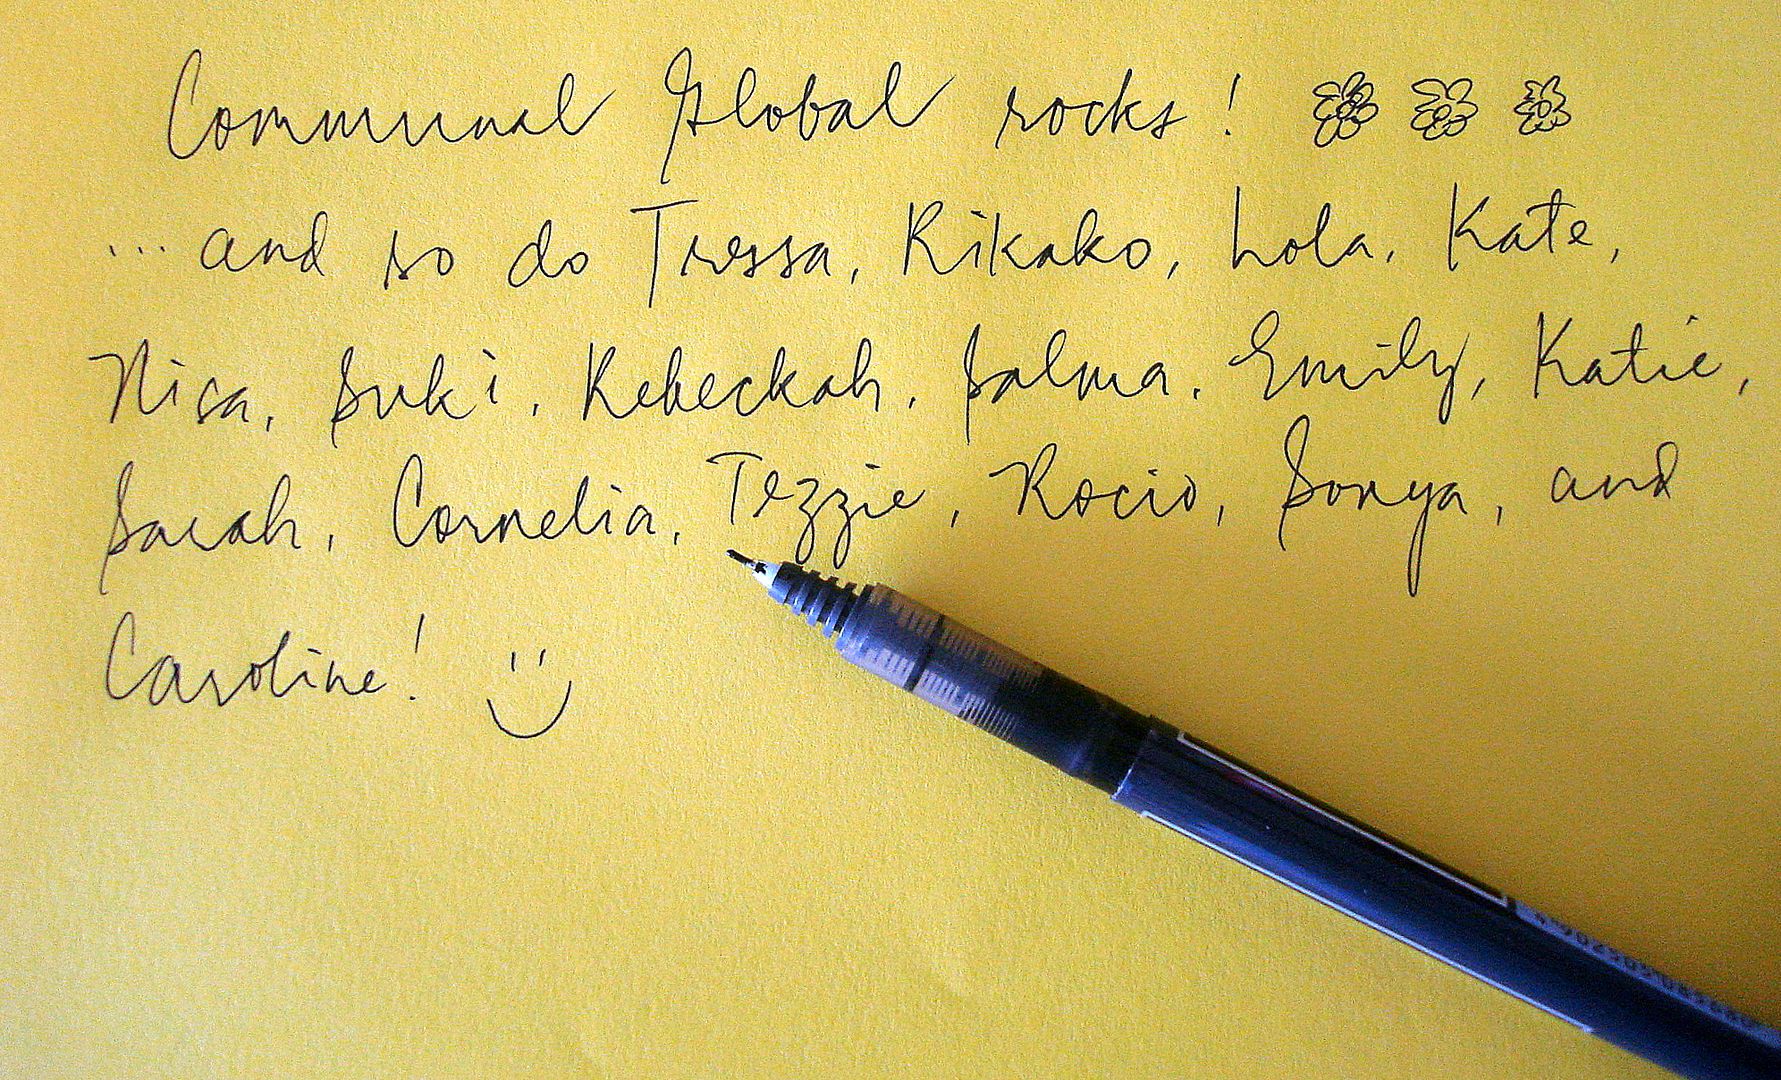 Communal Global rocks!
... and so do Tressa, Rikako, Lola, Kate,
Nisa, Suki, Rebeckah, Salma, Emily, Katie,
Sarah, Cornelia, Tezzie, Rocio, Sonya, and
Caroline!